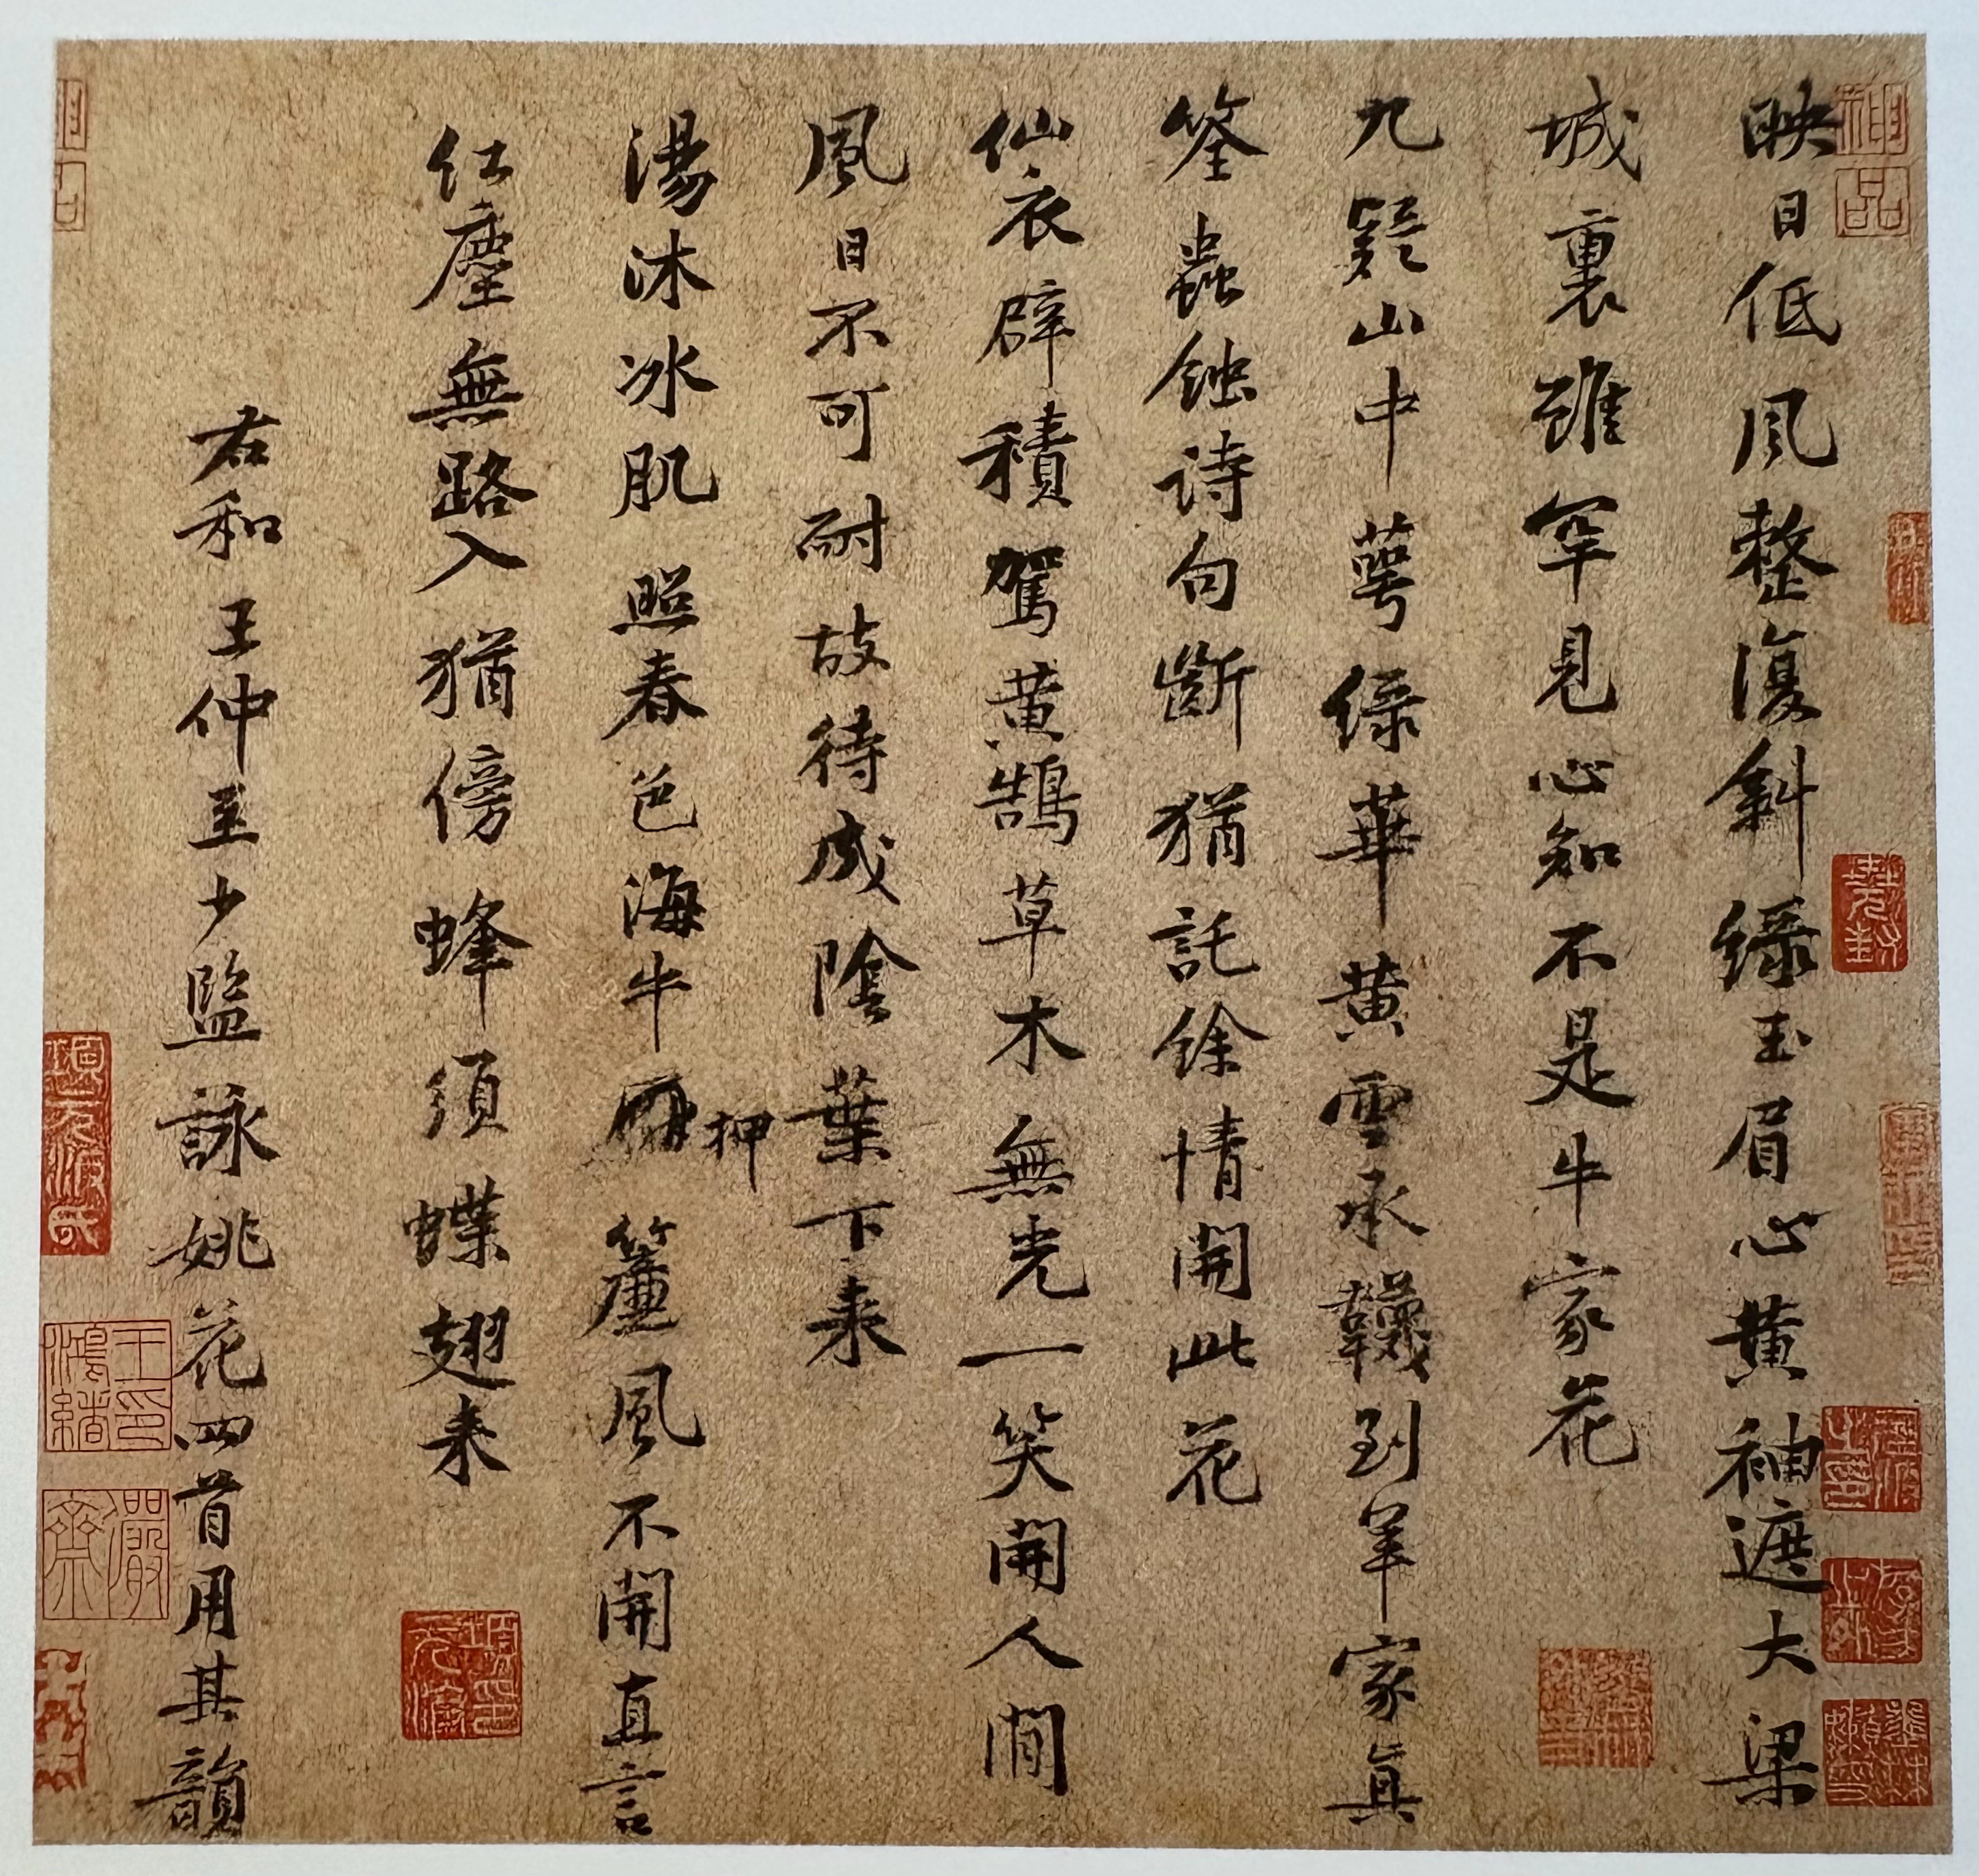 映日低風整復斜綠玉眉心黃袖遮大梁
城裏雖罕見心知不是牛家花
九疑山中萼綠華黃雲承韈到羊家真
筌蟲蝕詩句斷猶託餘情開此花
仙衣襞積駕黃鵠草木無光一笑開人間
風日不可耐故待成陰葉下来
湯沐冰肌照春色海牛押簾風不開直言
红塵無路入猶傍蜂須蝶翅来
右和王仲至少監詠姚花四首用其韻
神品
項元汴氏
王鴻緒印
儼齋